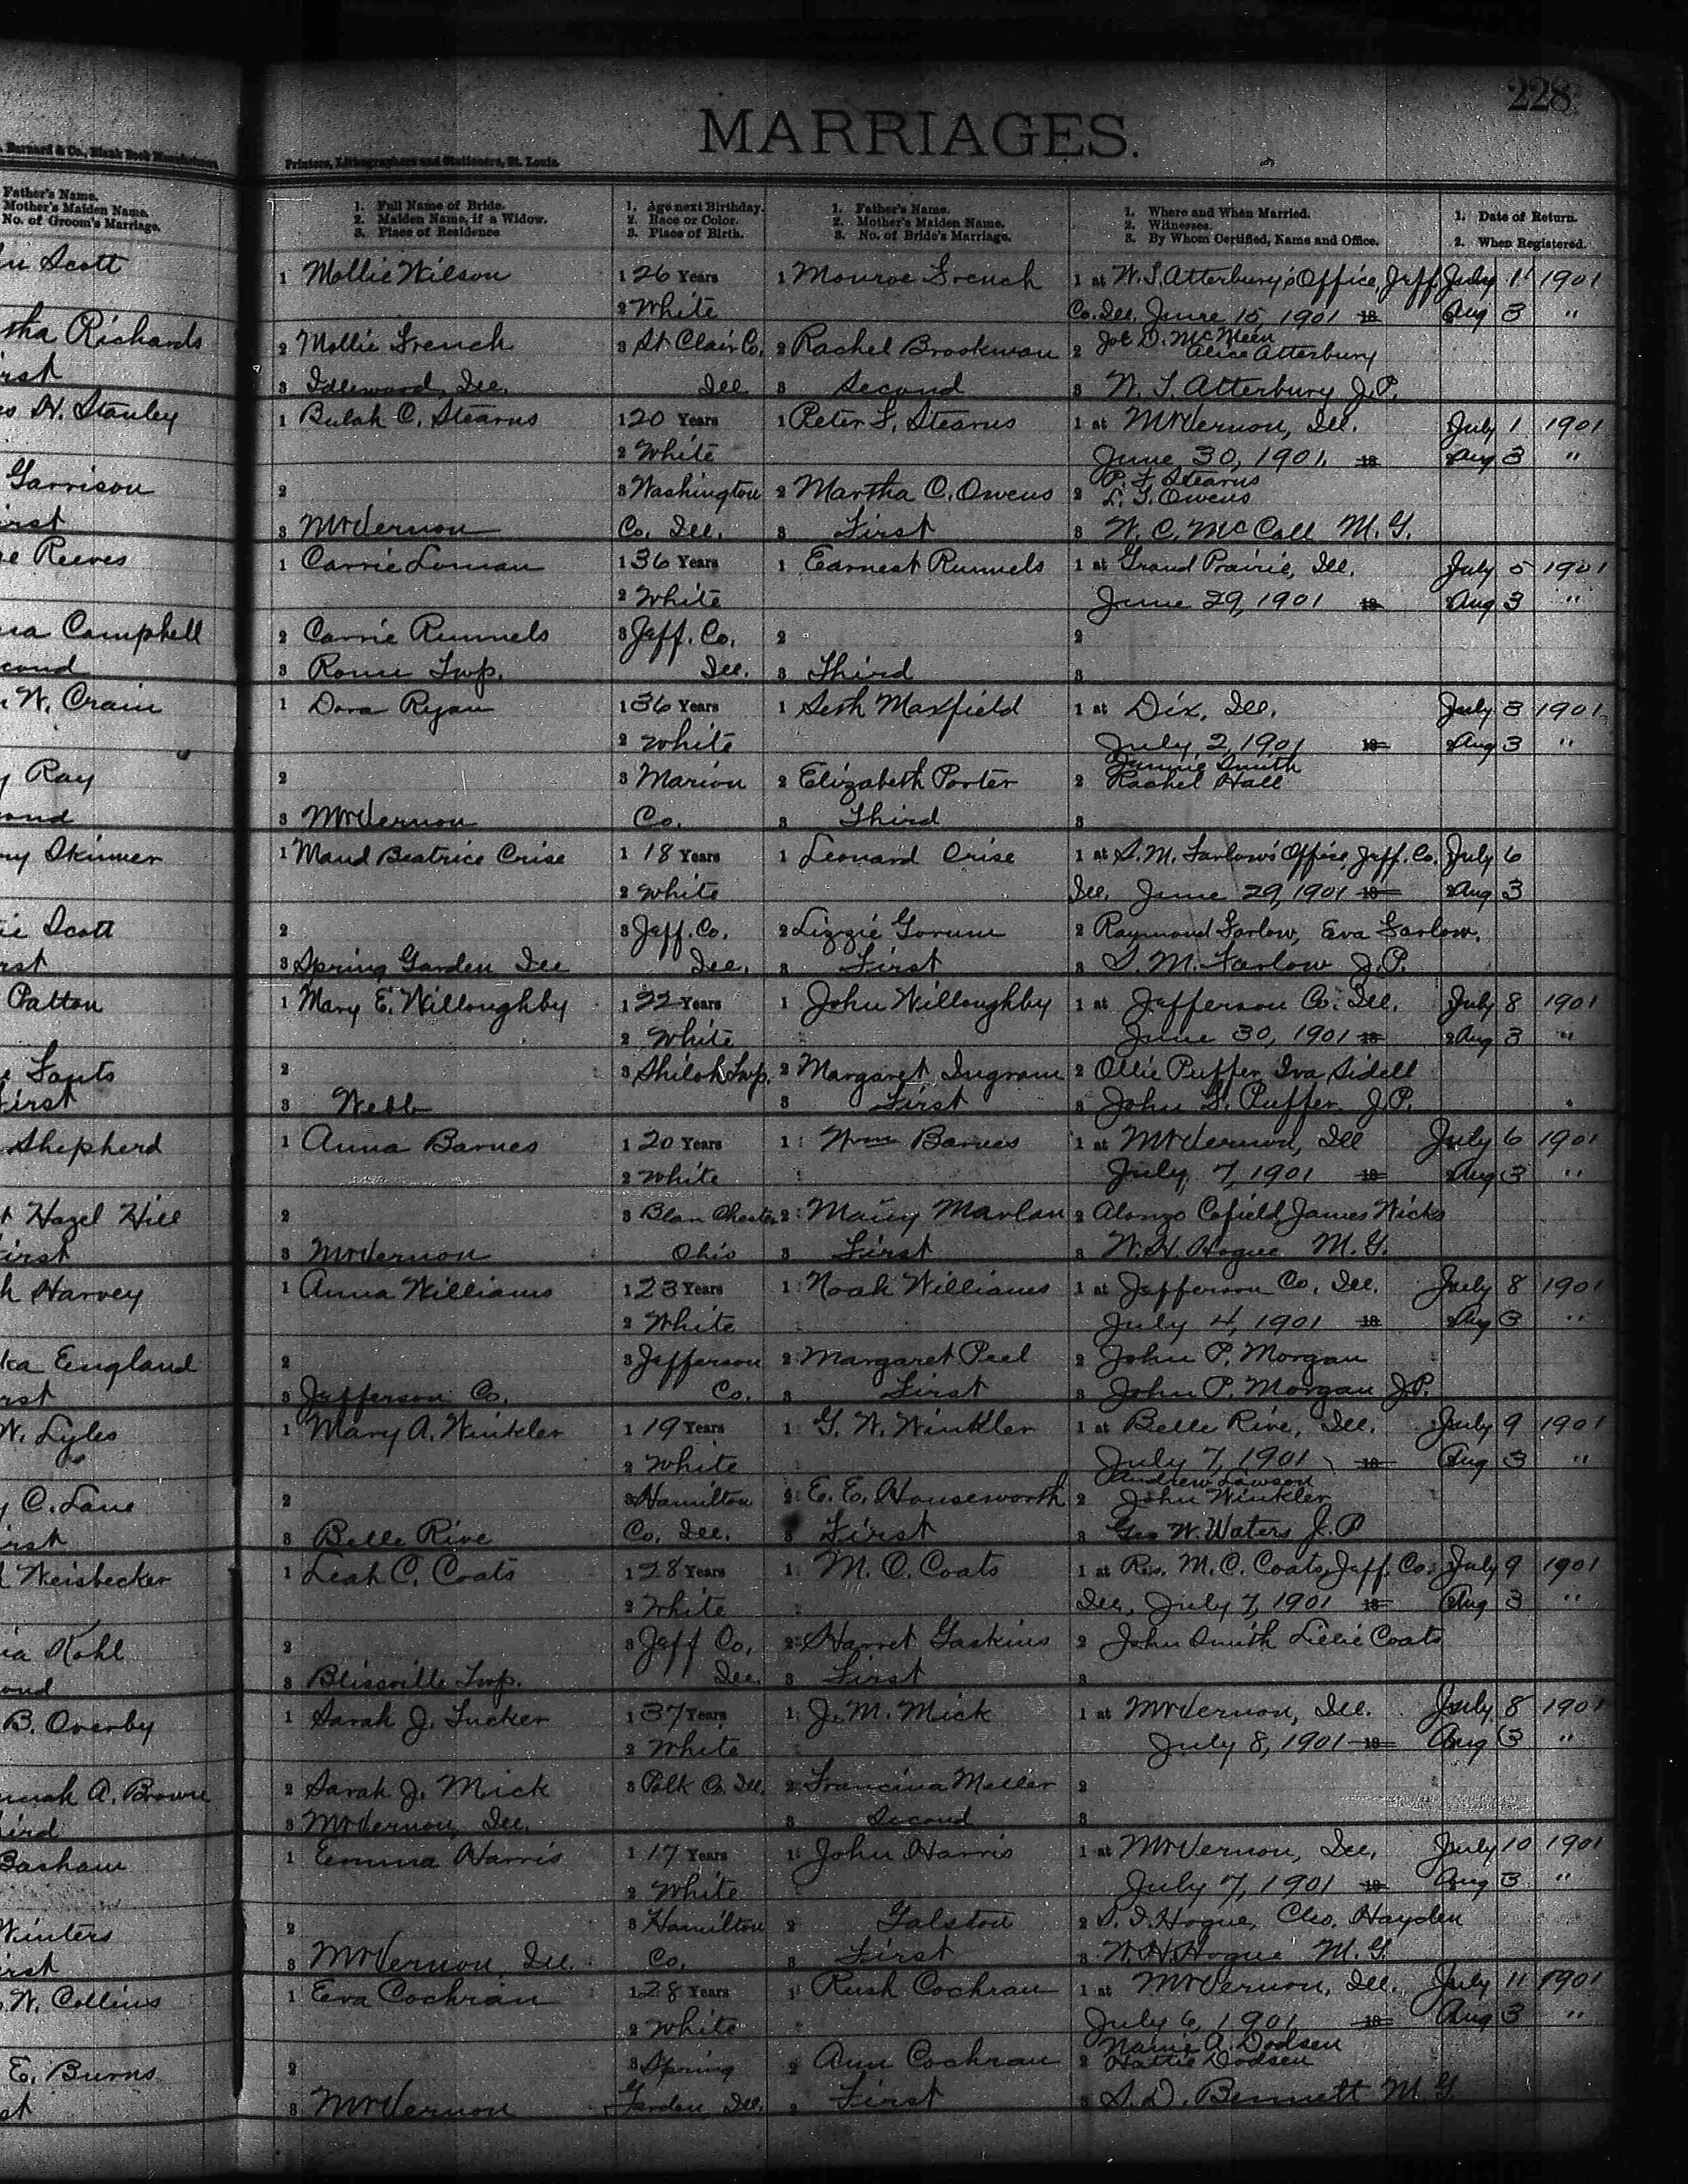 228
MARRIAGES.
Barnard & Co., Blank Book Manufacturers,
Printers, Lithographers and Stationers, St. Louis.
Father's Name.
Mother's Maiden Name.
No. of Groom's Marriage.
1. Full Name of Bride.
2. Maiden Name, if a Widow.
3. Place of Residence
1. Age next Birthday.
2. Race or Color.
3. Place of Birth.
1. Father's Name.
2. Mother's Maiden Name.
3. No. of Bride's Marriage.
1. Where and When Married.
2. Witnesses.
3. By Whom Certified, Name and Office.
1. Date of Return.
2. When Registered.
Scott
1 Mollie Wilson 1 26 Years 1 Monroe French 1 at W. S. Atterbury's Office, Jeff. July 1 1901
2 White Co. Ill. June 15, 1901 18 2 Aug 3 "
Richards
2 Mollie French 3 St Clair Co. 2 Rachel Brookman 2 Job D. McMeen
Alice Atterbury
3 Idlewood, Ill. Ill 3 Second 3 W. S. Atterbury J.P.
H. Stanley
1 Bulah C. Stearns 1 20 Years 1 Peter F. Stearns 1 at Mt Vernon, Ill. July 1 1901
2 White June 30, 1901. 18 2 Aug 3 "
Garrison
2 3 Washington 2 Martha C. Owens 2 P. F. Stearns
L. G. Owens
3 Mt Vernon Co. Ill. 3 First 3 W. C. McCall M. G.
Reeves
1 Carrie Loman 1 36 Years 1 Earnest Runnels 1 at Grand Prairie, Ill. July 5 1901
2 White June 29, 1901 18 2 Aug 3 "
Campbell
2 Carrie Runnels 3 Jeff. Co. 2 2
3 Rome Twp. Ill. 3 Third 3
W. Crain
1 Dora Ryan 1 36 Years 1 Seth Maxfield 1 at Dix, Ill. July 3 1901
2 White July, 2, 1901 18 2 Aug 3 "
Ray
2 3 Marion 2 Elizabeth Porter 2 Jennie Smith
Rachel Hall
3 Mt Vernon Co. 3 Third 3
Skinner
1 Maud Beatrice Crise 1 18 Years 1 Leonard Crise 1 at S. M. Farlow's Office, Jeff. Co. July 6
2 White Ill. June 29, 1901 18 2 Aug 3
Scott
2 3 Jeff. Co. 2 Lizzie Gorum 2 Raymond Farlow, Eva Farlow.
3 Spring Garden Ill Ill. 3 First 3 S. M. Farlow J.P.
Patton
1 Mary E. Willoughby 1 22 Years 1 John Willoughby 1 at Jefferson Co. Ill. July 8 1901
2 White June 30, 1901 18 2 Aug 3 "
Fouts
2 3 Shiloh Twp. 2 Margaret Ingram 2 Ollie Puffer Iva Sidell
First
3 Webb 3 First 3 John S. Puffer J.P.
Shepherd
1 Anna Barnes 1 20 Years 1 Wm Barnes 1 at Mt Vernon, Ill July 6 1901
2 White July, 7, 1901 18 2 Aug 3 "
Hazel Hill
2 3 Blan Chester 2 Maiey Marlan 2 Alonzo Cofield, James Wicks
3 Mt Vernon Ohio 3 First 3 W. H. Hogue M. G.
Harvey
1 Anna Williams 1 23 Years 1 Noah Williams 1 at Jefferson Co. Ill. July 8 1901
2 White July 4, 1901 18 2 Aug 3 "
England
2 3 Jefferson 2 Margaret Peel 2 John P. Morgan
3 Jefferson Co. Co. 3 First 3 John P. Morgan J.P.
W. Lyles
1 Mary A. Winkler 1 19 Years 1 G. W. Winkler 1 at Belle Rive, Ill. July 9 1901
2 White July 7, 1901 18 Aug 3 "
C. Lane
2 3 Hamilton 2 E. E. Houseworth 2 Andrew Lawson
John Winkler
3 Belle Rive Co. Ill. 3 First 3 Geo W. Waters J.P
Weisbecker
1 Leah C. Coats 1 28 Years 1 M. C. Coats 1 at Res. M. C. Coats, Jeff. Co. July 9 1901
2 White Ill, July 7, 1901 18 Aug 3 "
Kohl
2 3 Jeff Co. 2 Harret Gaskins 2 John Smith Lillie Coats
3 Blissville Twp. Ill. 3 First 3
B. Overby
1 Sarah J. Tucker 1 37 Years 1 J. M. Mick 1 at Mt Vernon, Ill. July 8 1901
2 White July 8, 1901 18 Aug 3 "
A. Browne
2 Sarah J. Mick 3 Polk Co. Ill. 2 Francina Meller 2
3 Mt Vernon, Ill. 3 Second 3
Basham
1 Emma Harris 1 17 Years 1 John Harris 1 at Mt Vernon, Ill. July 10 1901
2 White July 7, 1901 18 Aug 3 "
Winters
2 3 Hamilton 2 Galston 2 S. I. Hogue, Cleo. Hayden
3 Mt Vernon Ill. Co. 3 First 3 W. H. Hogue M. G.
W. Collins
1 Eva Cochran 1 28 Years 1 Rush Cochran 1 at Mt Vernon, Ill. July 11 1901
2 White July 6, 1901 18 Aug 3 "
E. Burns
2 3 Spring 2 Ann Cochran 2 Namie A. Dodsen
Hattie Dodsen
3 Mt Vernon Garden, Ill. 3 First 3 S. D. Bennett M. G.